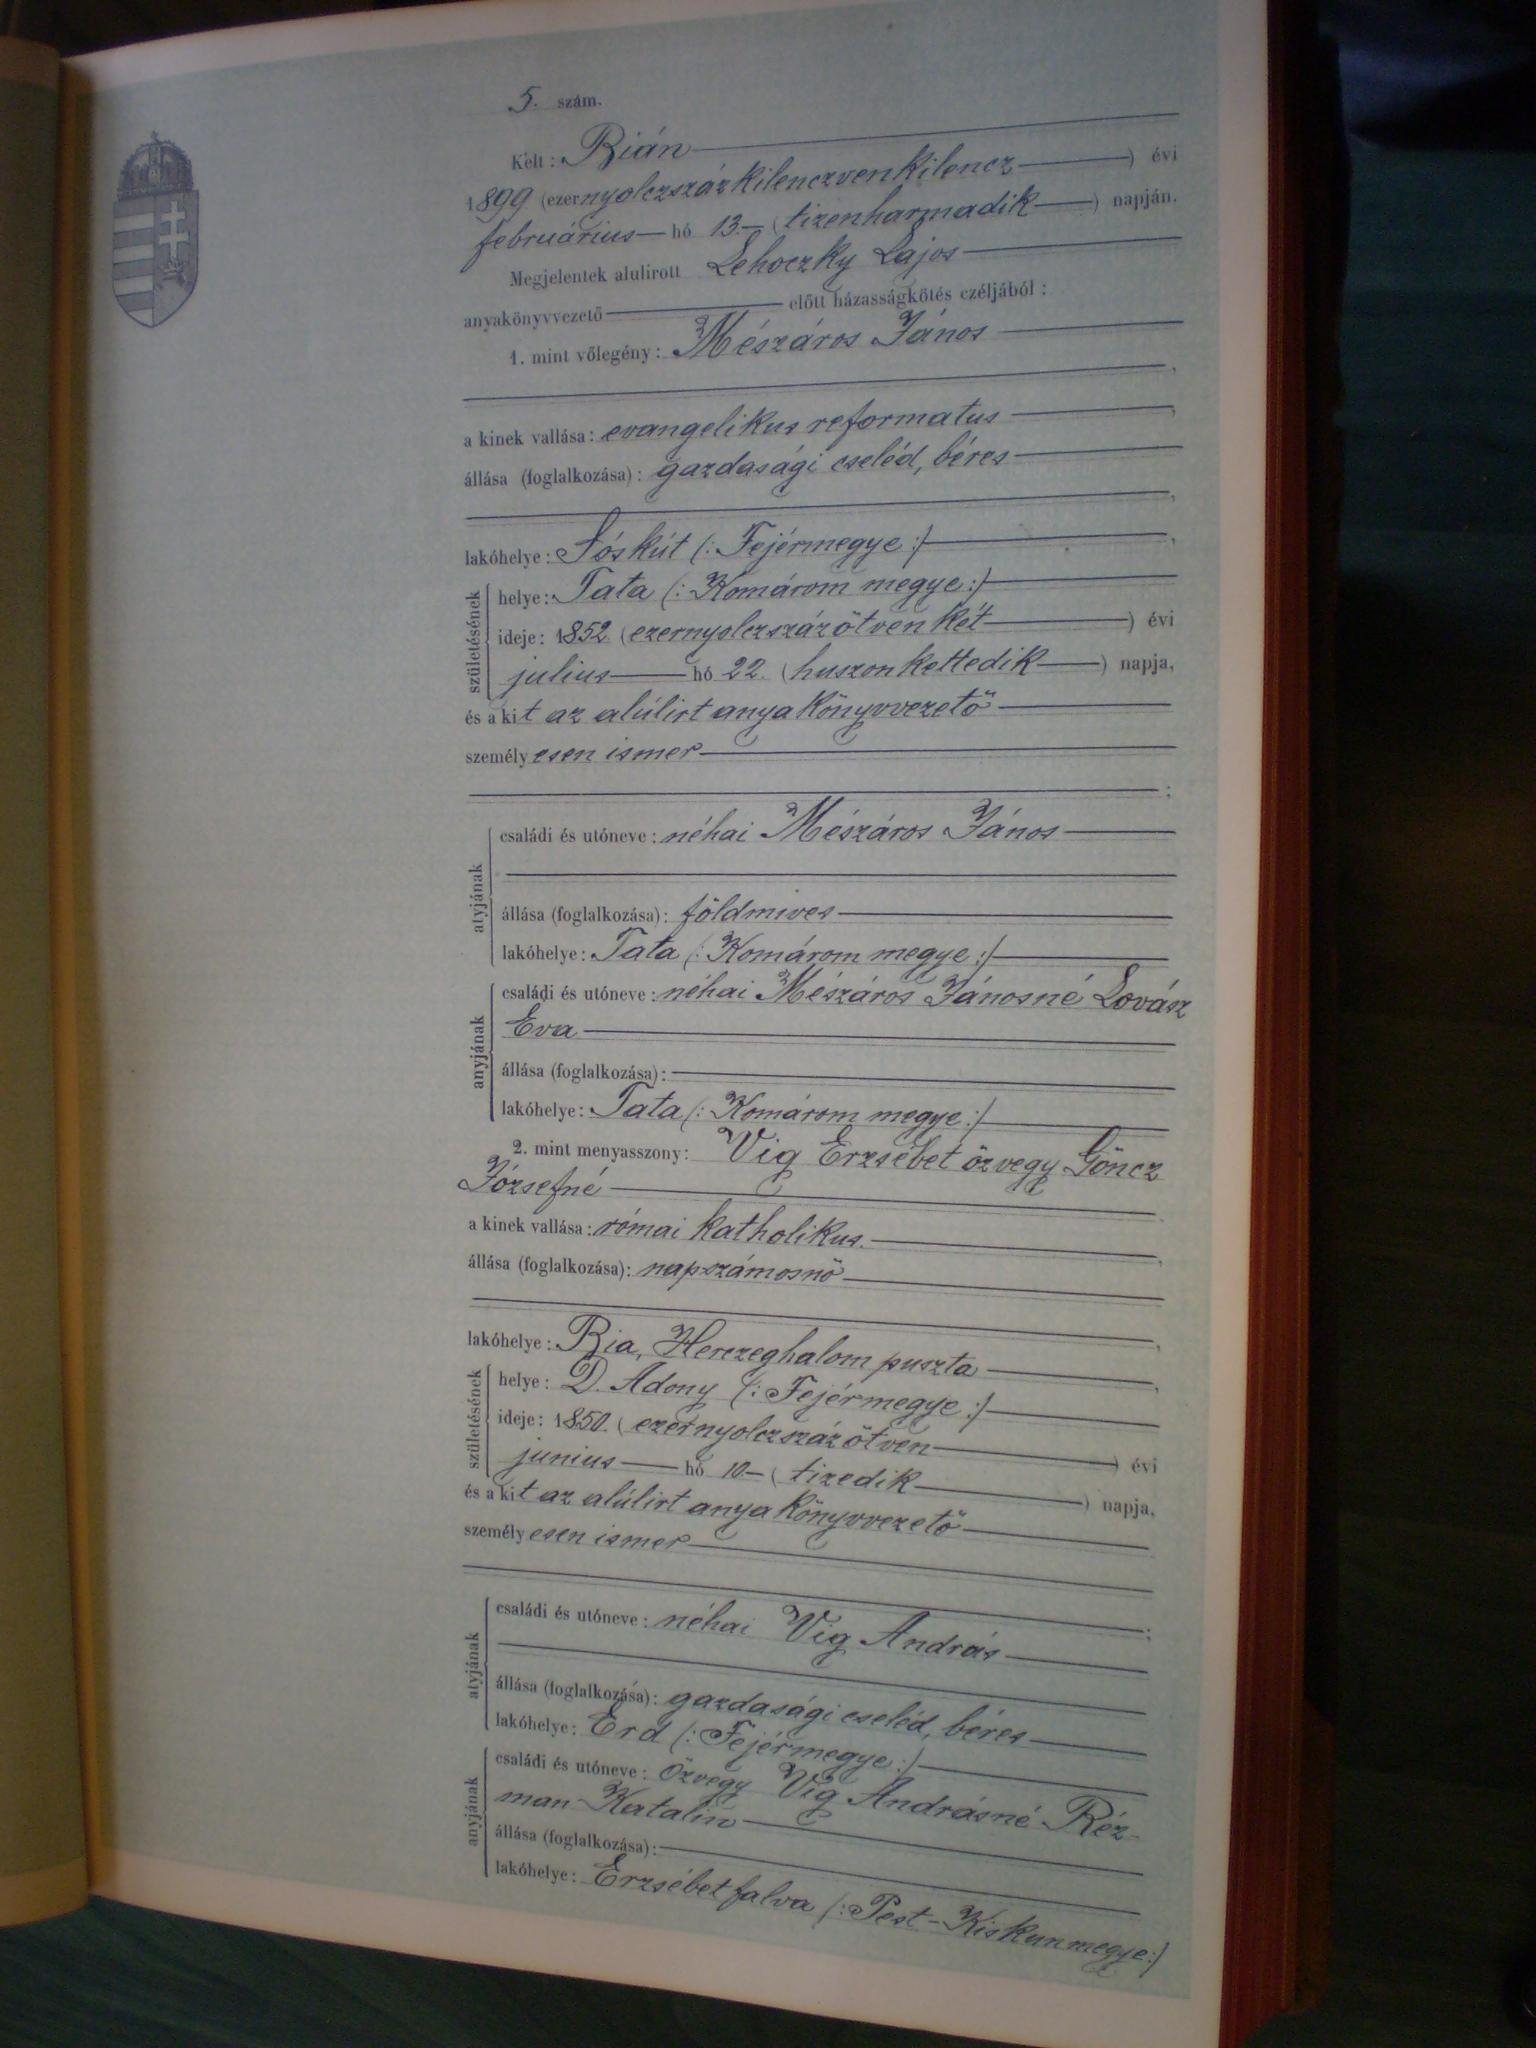 5. szám.
Kelt: Bián
1899 (ezernyolczszázkilenczvenkilencz) évi
februárius hó 13. (tizenharmadik) napján.
Megjelentek alulirott Lehoczky Lajos
anyakönyvvezető előtt házasságkötés czéljából:
1. mint vőlegény: Mészáros János
a kinek vallása: evangelikus reformatus
állása (foglalkozása): gazdasági cseléd, béres
lakóhelye: Sóskút (: Fejérmegye :)
születésének
helye: Tata (: Komárom megye :)
ideje: 1852. (ezernyolczszázötvenkét) évi
julius hó 22. (huszonkettedik) napja,
és a kit az alúlirt anyakönyvvezető
személyesen ismer
;
atyjának
családi és utóneve: néhai Mészáros János
állása (foglalkozása): földmives
lakóhelye: Tata (: Komárom megye :)
anyjának
családi és utóneve: néhai Mészáros Jánosné Lovász
Éva
állása (foglalkozása):
lakóhelye: Tata (: Komárom megye :)
2. mint menyasszony: Vig Erzsébet özvegy Göncz
Józsefné
a kinek vallása: római katholikus.
állása (foglalkozása): napszámosnő
lakóhelye: Bia, Herczeghalom puszta
születésének
helye: D. Adony (: Fejérmegye :)
ideje: 1850. (ezernyolczszázötven) évi
junius hó 10. (tizedik) napja,
és a kit az alúlirt anyakönyvvezető
személyesen ismer
;
atyjának
családi és utóneve: néhai Vig András
állása (foglalkozása): gazdasági cseléd, béres
lakóhelye: Érd (: Fejérmegye :)
anyjának
családi és utóneve: özvegy Vig Andrásné Réz-
man Katalin
állása (foglalkozása):
lakóhelye: Erzsébetfalva (: Pest-Kiskunmegye :)